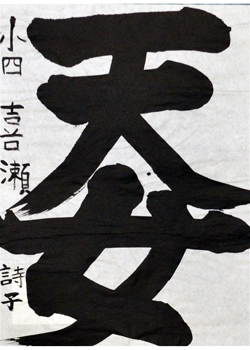 天女
小四 喜瀬 詩子